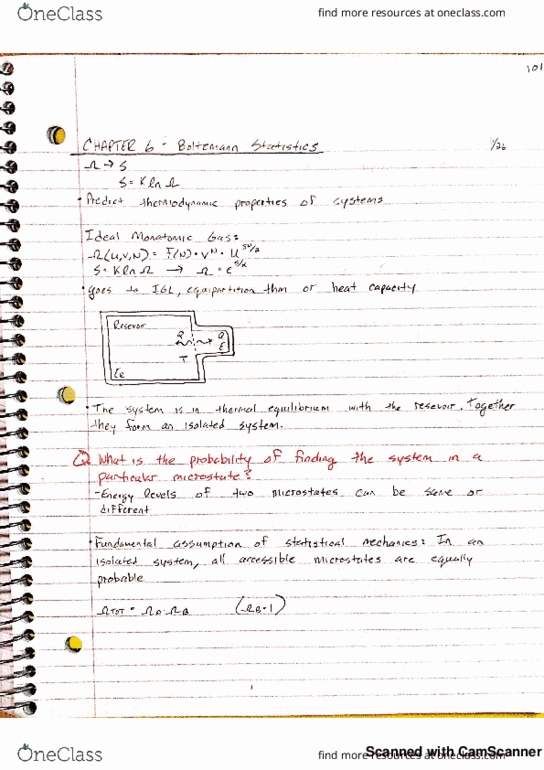 OneClass
find more resources at oneclass.com
101
CHAPTER 6 - Boltzmann Statistics
1/26
Ω → S
S = K ln Ω
• Predict thermodynamic properties of systems
Ideal Monatomic Gas:
Ω(U,V,N) = F(N) · V^N · U^3N/2
S = K ln Ω → Ω = e^S/k
• goes to IGL, equipartition thm or heat capacity
Reservoir
T
• The system is in thermal equilibrium with the reservoir. Together
they form an isolated system.
Q What is the probability of finding the system in a
particular microstate?
- Energy levels of two microstates can be same or
different
• Fundamental assumption of statistical mechanics: In an
isolated system, all accessible microstates are equally
probable
1
OneClass
find more resources at oneclass.com
Scanned with CamScanner